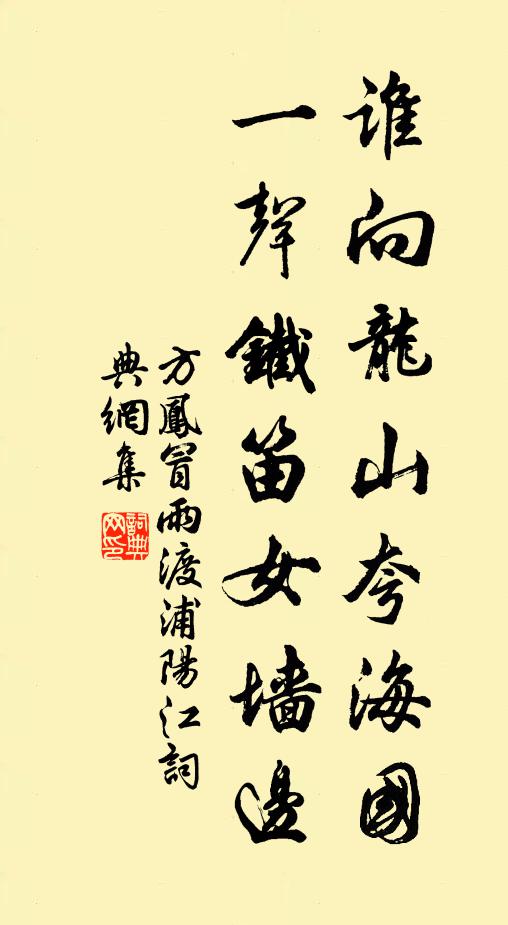 谁向龍山夸海國
一聲鐵笛女墙邊
方鳳冒雨渡浦陽江詞
典網集
詞典網印